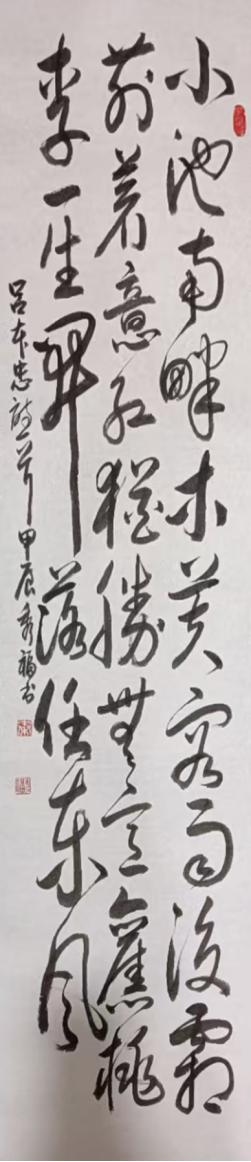 小池南畔木芙蓉雨後霜
前著意紅猶勝無言舊桃
李一生開落任東風
呂本中詩一首甲辰秀福書